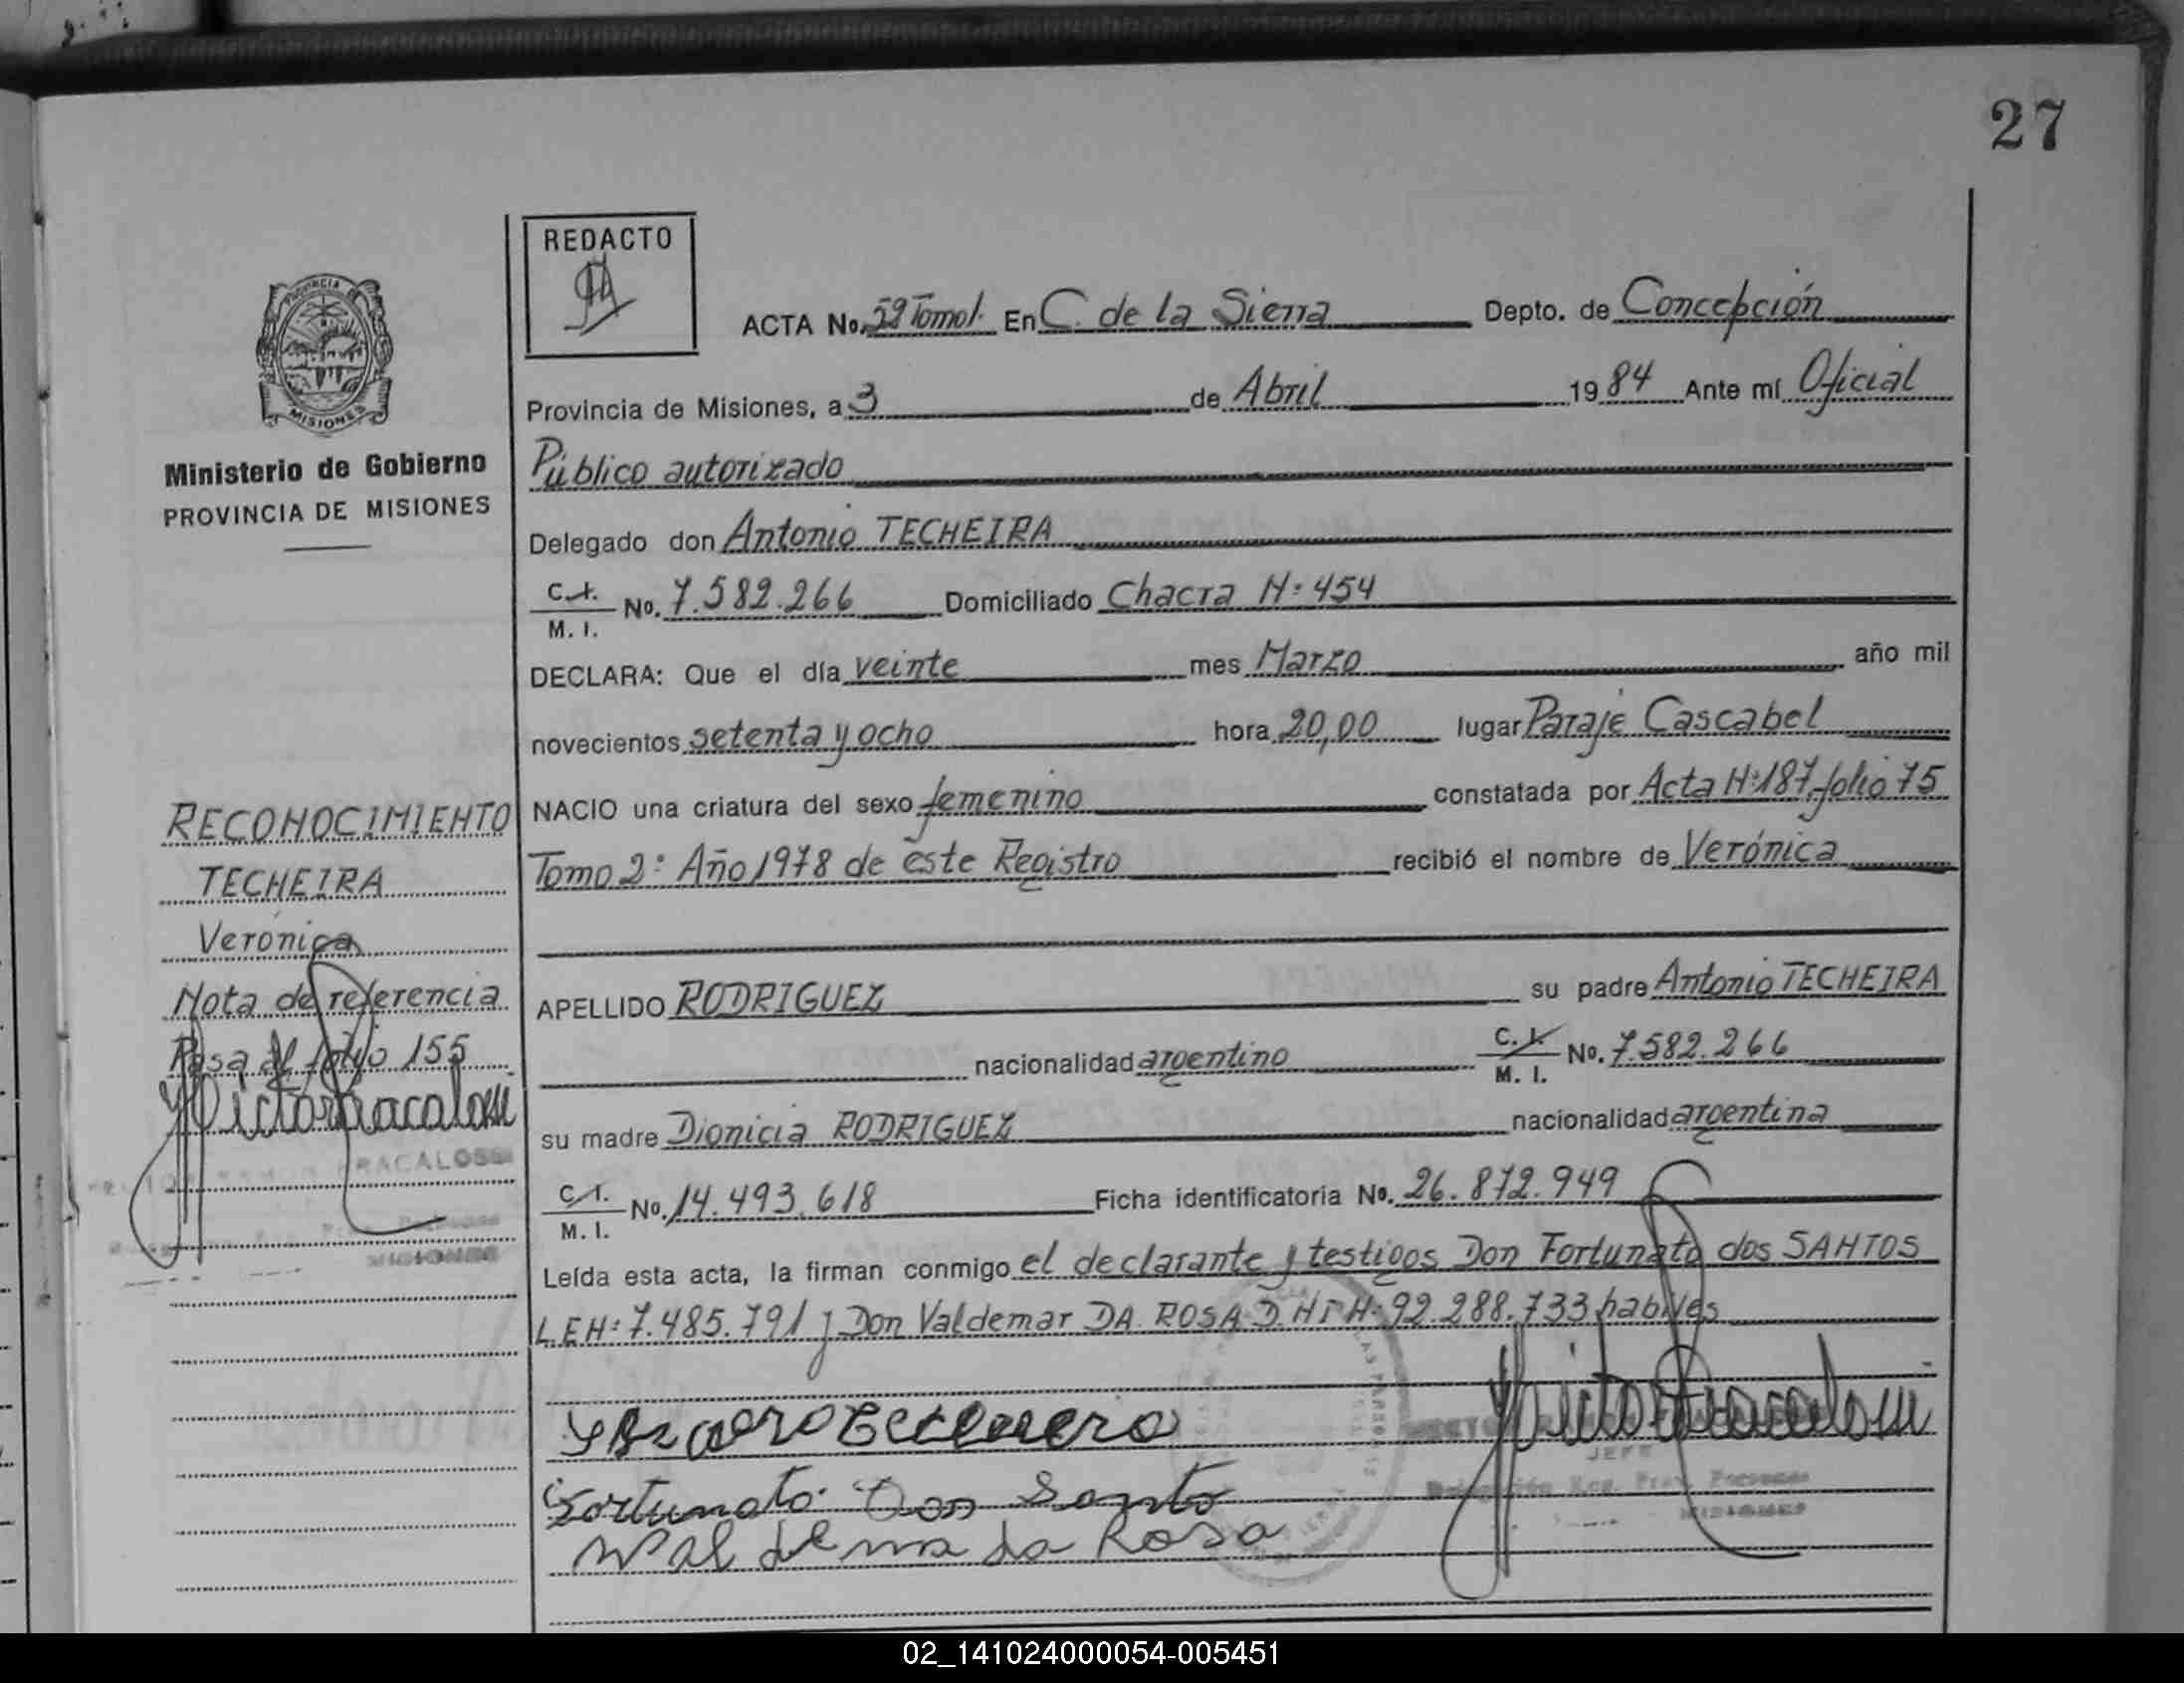 27
REDACTO
ACTA No. 59 Tomo I. En C. de la Sierra Depto. de Concepción
Provincia de Misiones, a 3 de Abril 1984 Ante mí Oficial
Público autorizado
Delegado don Antonio TECHEIRA
C.I. M.I. No. 7.582.266 Domiciliado Chacra Nº 454
DECLARA: Que el día veinte mes Marzo año mil
novecientos setenta y ocho hora 20,00 lugar Paraje Cascabel
NACIO una criatura del sexo femenino constatada por Acta Nº 187, folio 75
Tomo 2º Año 1978 de este Registro recibió el nombre de Verónica
APELLIDO RODRIGUEZ su padre Antonio TECHEIRA
nacionalidad argentino C.I. M.I. No. 7.582.266
su madre Dionicia RODRIGUEZ nacionalidad argentina
C.I. M.I. No. 14.493.618 Ficha identificatoria No. 26.872.949
Leída esta acta, la firman conmigo el declarante y testigos Don Fortunato dos SANTOS
L.E.Nº 7.485.791 y Don Valdemar DA ROSA D.N.I Nº 92.288.733 habiles
Fortunato Dos Santo
Waldema da Rosa
JEFE
Delegación Reg. Prov. Personas
MISIONES
PROVINCIA DE
MISIONES
Ministerio de Gobierno
PROVINCIA DE MISIONES
RECONOCIMIENTO
TECHEIRA
Verónica
Nota de referencia
Pasa al folio 155
BRACALOSSI
MISIONES
02_141024000054-005451